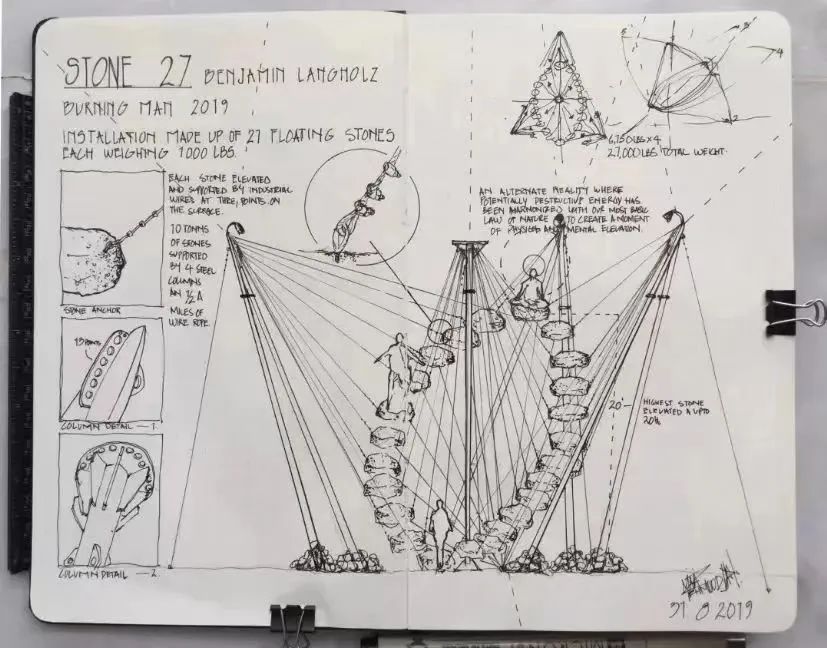 STONE 27 BENJAMIN LANGHOLZ
BURNING MAN 2019
INSTALLATION MADE UP OF 27 FLOATING STONES
EACH WEIGHING 1000 LBS.
EACH STONE ELEVATED
AND SUPPORTED BY INDUSTRIAL
WIRES AT THREE POINTS ON
THE SURFACE.
10 TONNS
OF STONES
SUPPORTED
BY 4 STEEL
COLUMNS
AN 1/2 A
MILES OF
WIRE ROPE.
STONE ANCHOR
13 POINTS
COLUMN DETAIL — 1.
COLUMN DETAIL — 2
6,750 LBS X 4
27,000 LBS TOTAL WEIGHT.
AN ALTERNATE REALITY WHERE
POTENTIALLY DESTRUCTIVE ENERGY HAS
BEEN HARMONIZED WITH OUR MOST BASIC
LAW OF NATURE TO CREATE A MOMENT
OF PHYSICAL AND MENTAL ELEVATION.
2
20'
HIGHEST STONE
ELEVATED A UPTO
20ft
31 8 2019